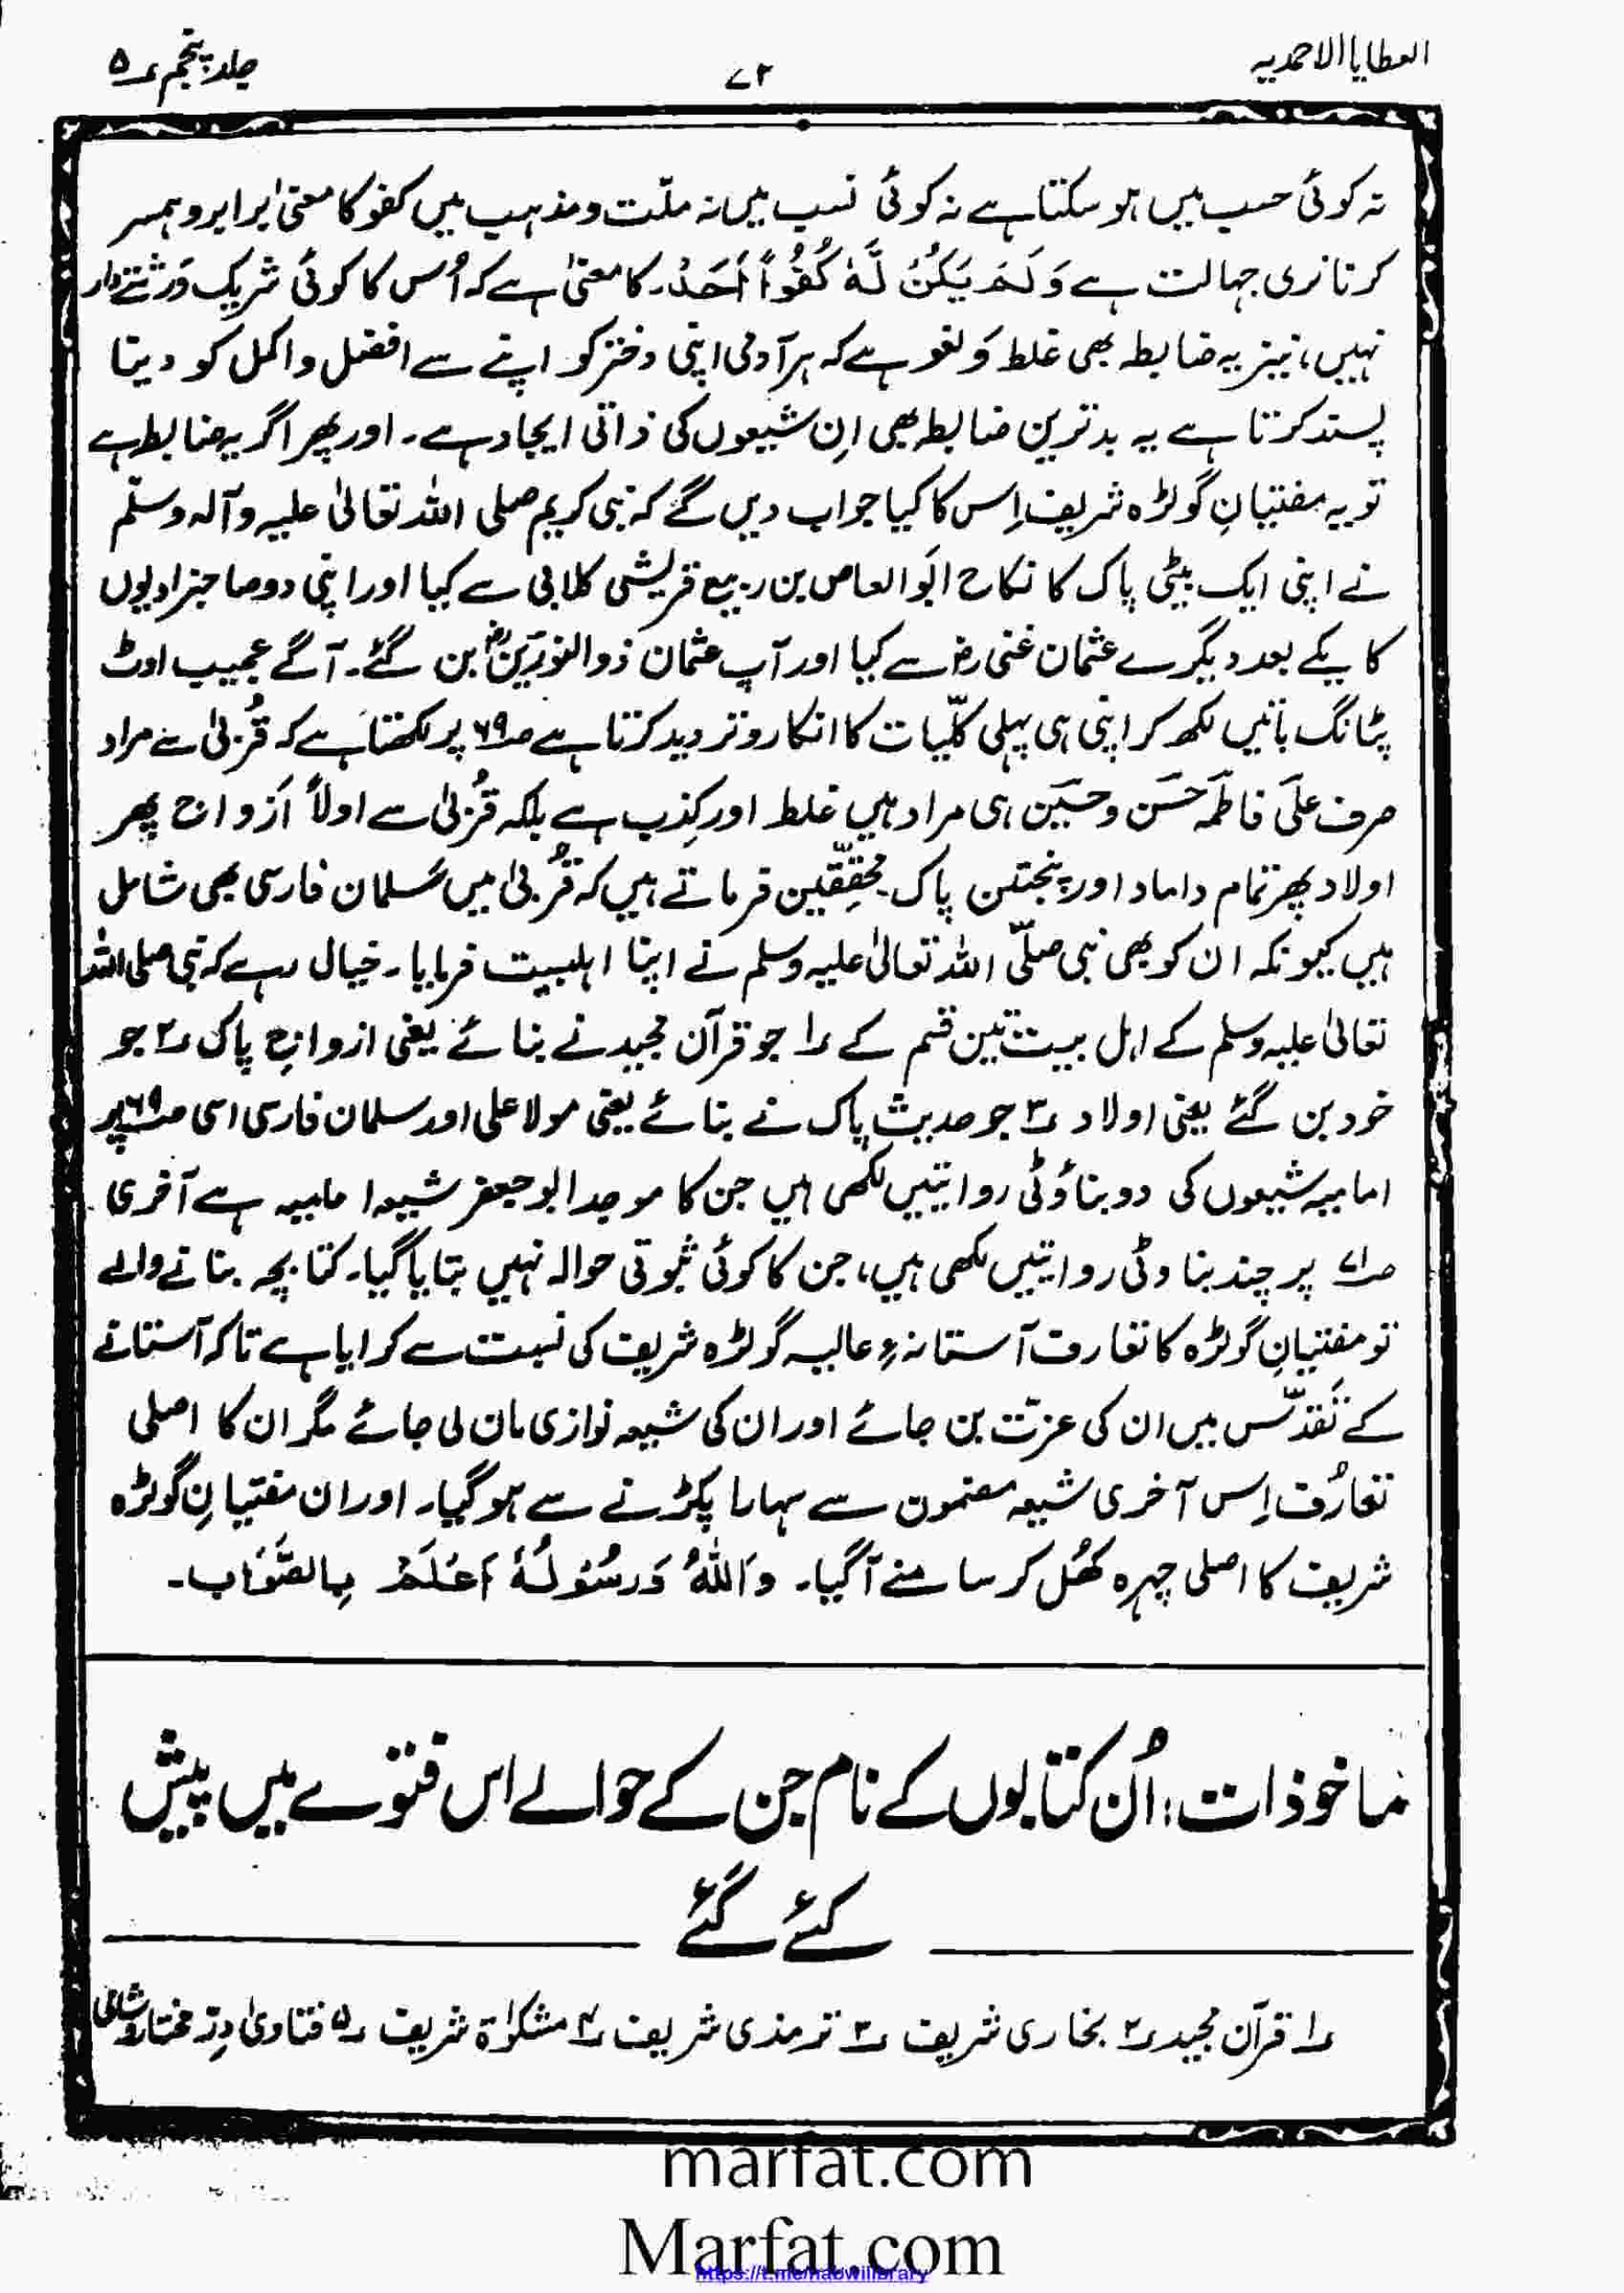 العطایا الاحمدیہ
۷۲
جلد پنجم ۵
نہ کوئی حسب میں ہو سکتا ہے نہ کوئی نسب میں نہ ملّت و مذہب میں کفو کا معنیٰ برابر و ہمسر
کرنا نری جہالت ہے وَلَمْ يَكُنْ لَّهٗ كُفُواً اَحَدٌ۔ کا معنیٰ ہے کہ اُس کا کوئی شریک وَرشتے دار
نہیں، نیز یہ ضابطہ بھی غلط وَ لغو ہے کہ ہر آدمی اپنی دختر کو اپنے سے افضل و اکمل کو دینا
پسند کرتا ہے یہ بدترین ضابطہ بھی اِن شیعوں کی ذاتی ایجاد ہے۔ اور پھر اگر یہ ضابطہ ہے
تو یہ مفتیانِ گولڑہ شریف اِس کا کیا جواب دیں گے کہ نبی کریم صلی اللہ تعالیٰ علیہ وآلہ وسلّم
نے اپنی ایک بیٹی پاک کا نکاح ابَو العاص بن ربیع قریشی کلابی سے کیا اور اپنی دو صاحبزادیوں
کا یکے بعد دیگرے عثمان غنی رضؓ سے کیا اور آپ عثمان ذوالنورَین بن گئے۔ آگے عجیب اوٹ
پٹانگ باتیں لکھ کر اپنی ہی پہلی کلّیات کا انکار و تردید کرتا ہے صـ۶۹ پر لکھتا ہے کہ قُربیٰ سے مراد
صرف علی فاطمہ حسَن و حسین ہی مراد ہیں غلط اور کِذب ہے بلکہ قُربیٰ سے اولاً اَزواج پھر
اولاد پھر تمام داماد اور پنجتن پاک۔ محقِّقین فرماتے ہیں کہ قُربیٰ میں سلمان فارسی بھی شامل
ہیں کیونکہ ان کو بھی نبی صلّی اللہ تعالیٰ علیہ وسلم نے اپنا اہلبیت فرمایا۔ خیال رہے کہ نبی صلی اللہ
تعالیٰ علیہ وسلم کے اہل بیت تین قسم کے ۱ جو قرآن مجید نے بنائے یعنی ازواجِ پاک ۲ جو
خود بن گئے یعنی اولاد ۳ جو حدیث پاک نے بنائے یعنی مولا علی اور سلمان فارسی اسی صـ۶۹ پر
امامیہ شیعوں کی دو بناؤٹی روایتیں لکھی ہیں جن کا موجد ابو جعفر شیعہ امامیہ ہے آخری
صـ۷۱ پر چند بناوٹی روایتیں لکھی ہیں، جن کا کوئی ثبوتی حوالہ نہیں بتایا گیا۔ کتابچہ بنانے والے
تو مفتیانِ گولڑہ کا تعارف آستانہءِ عالیہ گولڑہ شریف کی نسبت سے کرایا ہے تاکہ آستانے
کے تَقدّس میں ان کی عزّت بن جائے اور ان کی شیعہ نوازی مان لی جائے مگر ان کا اصلی
تعارُف اِس آخری شیعہ مضمون سے سہارا پکڑنے سے ہو گیا۔ اور ان مفتیانِ گولڑہ
شریف کا اصلی چہرہ کھُل کر سامنے آگیا۔ وَاللهُ وَرَسُوْلُهٗ اَعْلَمْ بِالصَّوَاب۔
ماخوذات: اُن کتابوں کے نام جن کے حوالے اس فتوے میں پیش
کئے گئے
۱ قرآن مجید ۲ بخاری شریف ۳ ترمذی شریف ۴ مشکوٰۃ شریف ۵ فتاویٰ دِرّ مختار شامی
marfat.com
Marfat.com
https://t.me/nabwilibrary